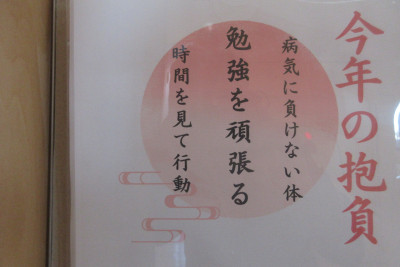 今年の抱負
病気に負けない体
勉強を頑張る
時間を見て行動